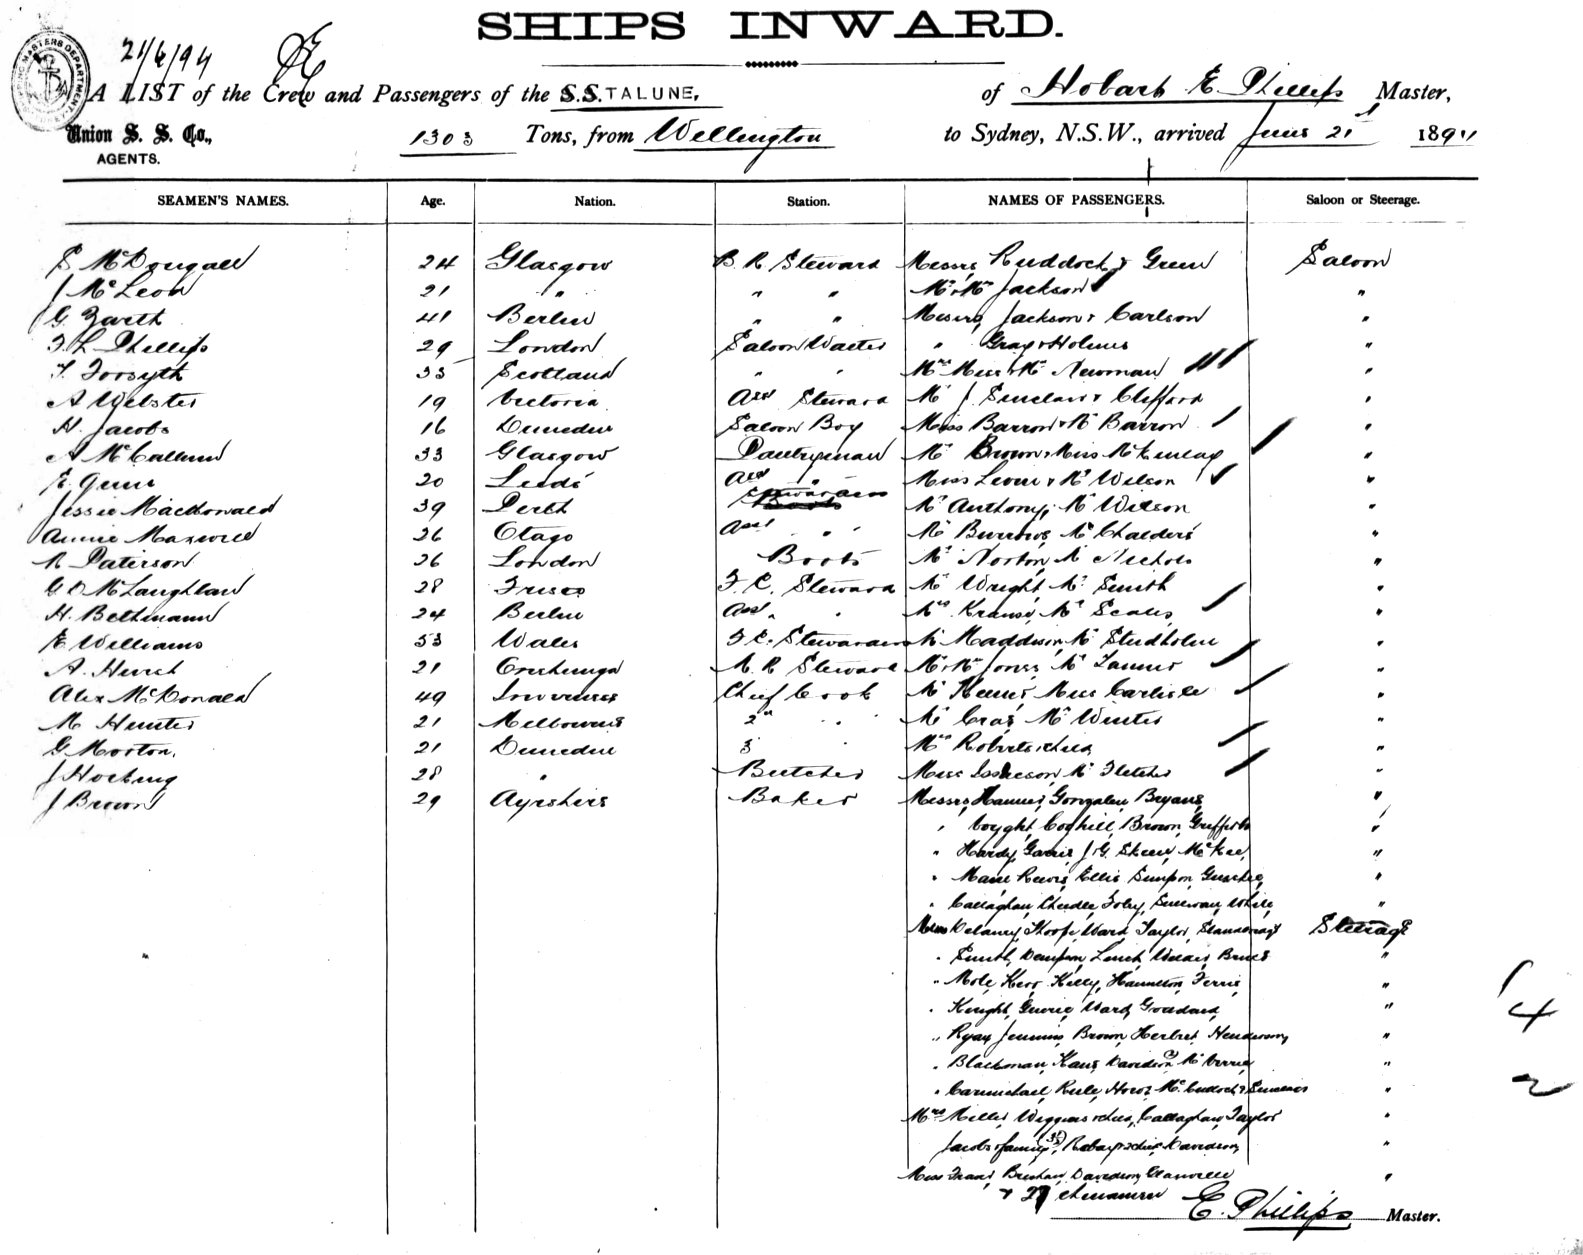 SHIPS INWARD.
21/6/94
A LIST of the Crew and Passengers of the S.S. TALUNE, of Hobart E. Phillips Master,
Union S. S. Co., 1303 Tons, from Wellington to Sydney, N.S.W., arrived June 21st 1894
AGENTS.
SEAMEN'S NAMES. Age. Nation. Station. NAMES OF PASSENGERS. Saloon or Steerage.
S McDougall 24 Glasgow B. R Steward Messrs Ruddock & Green Saloon
J McLeod 21 " " " Mr & Mrs Jackson "
G. Zarth 41 Berlin " " Messrs Jackson & Carlson "
F. L Phillips 29 London Saloon Waiter " Gray & Holmes "
T. Forsyth 33 Scotland " " Mrs Miss & Mr Newman "
A Webster 19 Victoria Asst Steward Mr J. Sinclair & Clifford "
H. Jacobs 16 Dunedin Saloon Boy Miss Barron & Mr Barron "
A McCallum 33 Glasgow Pantryman Mr Brown, Miss McKinlay "
E. Gunn 20 Leeds Asst " Miss Levin & Mr Wilson "
Jessie Macdonald 39 Perth Stewardess Mr Anthony, Mr Watson "
Annie Maxwell 26 Otago Asst " " Mr Burrows, Mr Chalders "
R Paterson 26 London Boots Mr Norton, Mr Nichols "
G D McLaughlan 28 Frisco F. C. Steward Mr Wright, Mr Smith "
H. Bethmann 24 Berlin Asst " " Mrs Krause, Mr Scales "
E Williams 53 Wales F. C. Stewardess Mr Maddison, Mr Studholme "
A. Hurst 21 Onehunga M. R Steward Mr & Mrs Jones, Mr Tanner "
Alex McDonald 49 Inverness Chief Cook Mr Miss Carlisle "
M Hunter 21 Melbourne 2nd " " Mr Mr Winter "
G Morton. 21 Dunedin 3 " Mrs Roberts & child "
J Hocking 28 " Butcher Miss Isaacson, Mr Fletcher "
J Brown 29 Ayrshire Baker Messrs Gonzales, Bryans, "
" Coghill, Brown, Griffiths "
" Hardy, J. G. Skeen, McKee, "
" Ellis, Simpson, "
" Callaghan, Cheedle, Foley, Sullivan, White, "
Delaney, Ward, Taylor, Steerage
" Smith, "
" Mole, Kerr, Kelly, Hamilton, Ferris, "
" Knight, Ward, Goddard, "
" Ryan, Jennings, Brown, Herbert, Henderson, "
" Blackman, Davidson "
" Carmichael, McCulloch & "
Mrs Wiggins & child, Callaghan, Taylor "
Jacobs & family, Davidson, "
Miss Davidson, Glanville "
& Chinamen
E. Phillips Master.
4
2